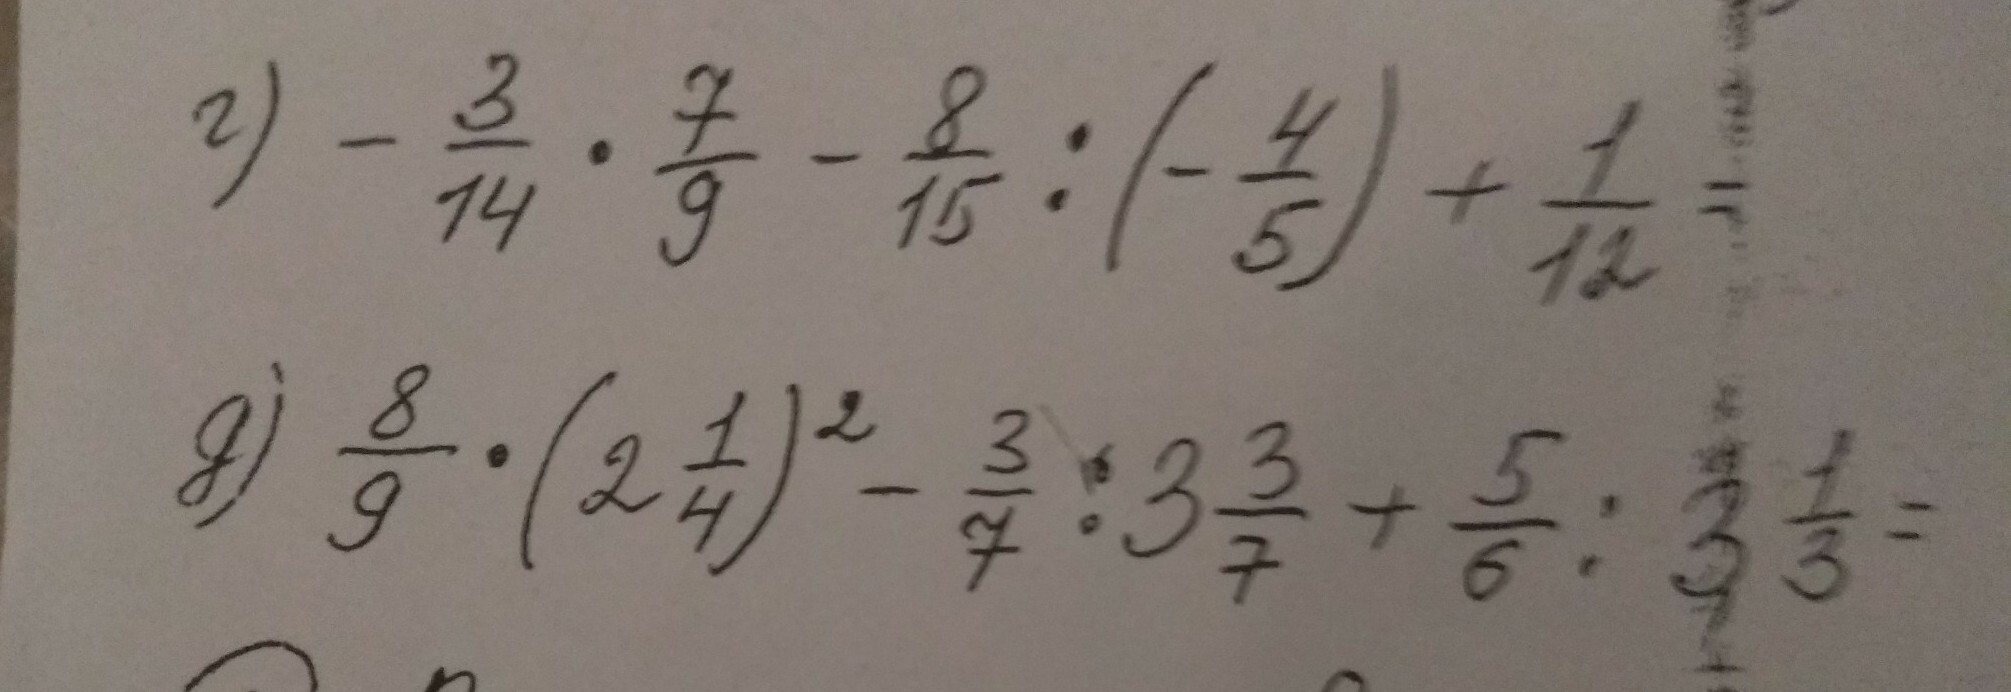 г) - 3/14 · 7/9 - 8/15 : (- 4/5) + 1/12 =
д) 8/9 · (2 1/4)² - 3/7 : 3 3/7 + 5/6 : 3 1/3 =